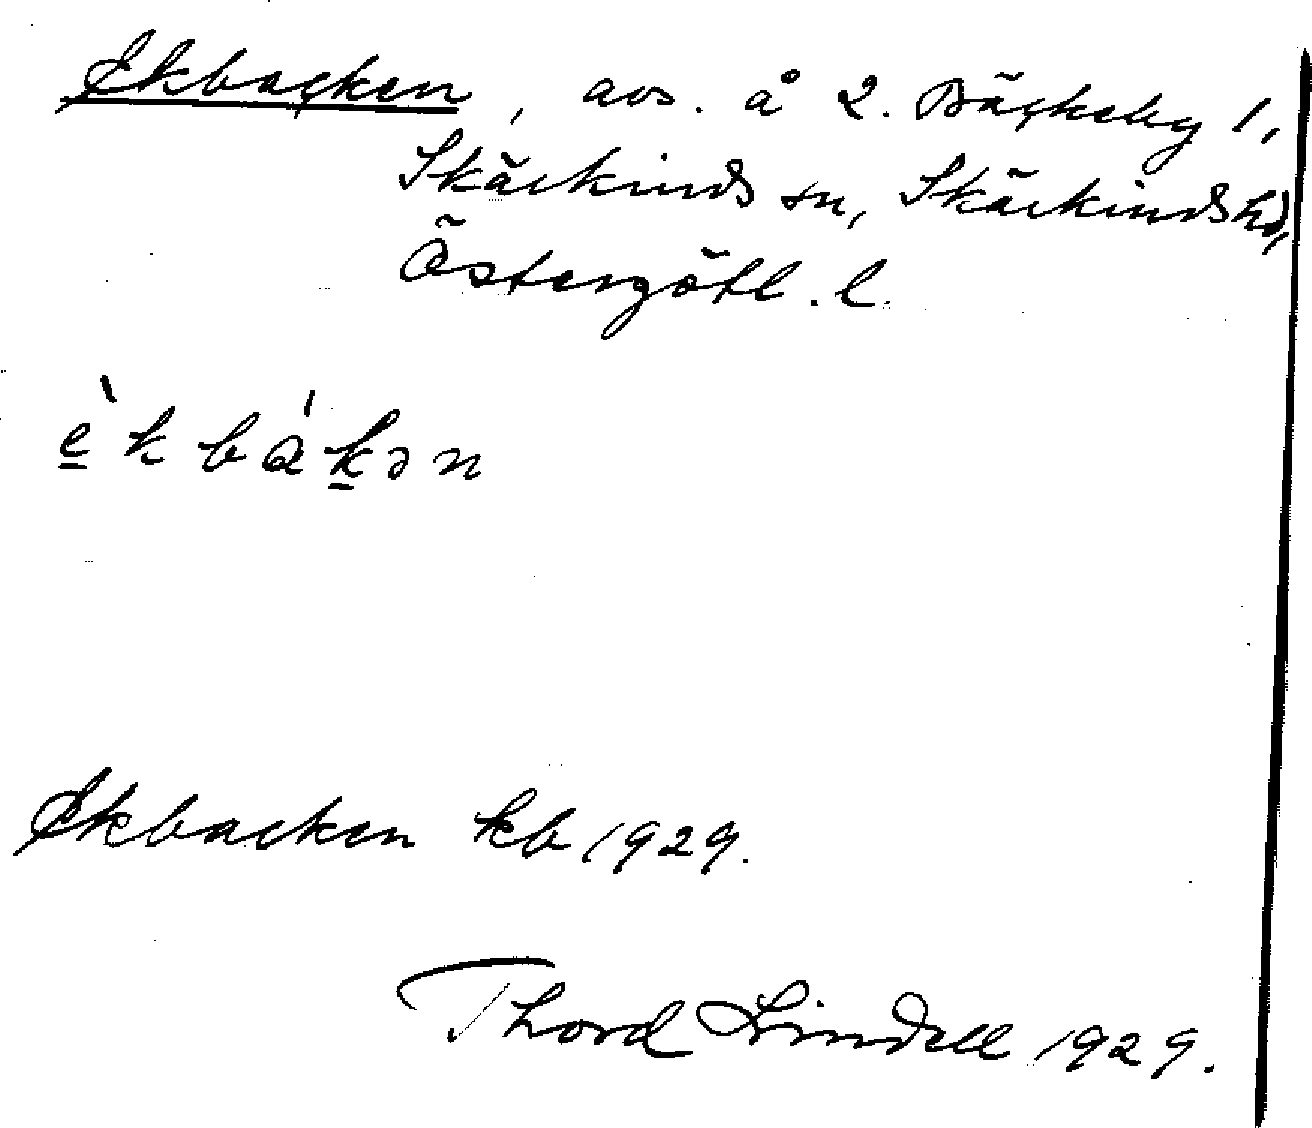 Ekbacken, avs. å 2. Bäckeby 1,
Skärkinds sn, Skärkinds hd,
Östergötl. l.
è̱k báḵən
Ekbacken kb 1929.
Thord Lindell 1929.